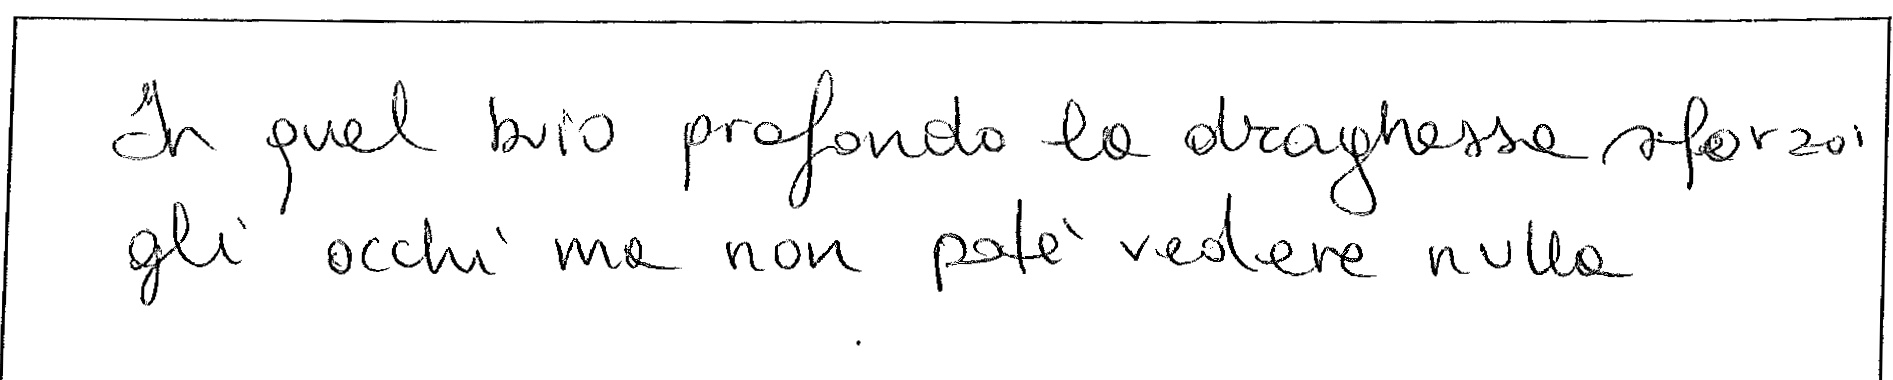 In quel buio profondo la draghessa sforzoi
gli occhi ma non poté vedere nulla